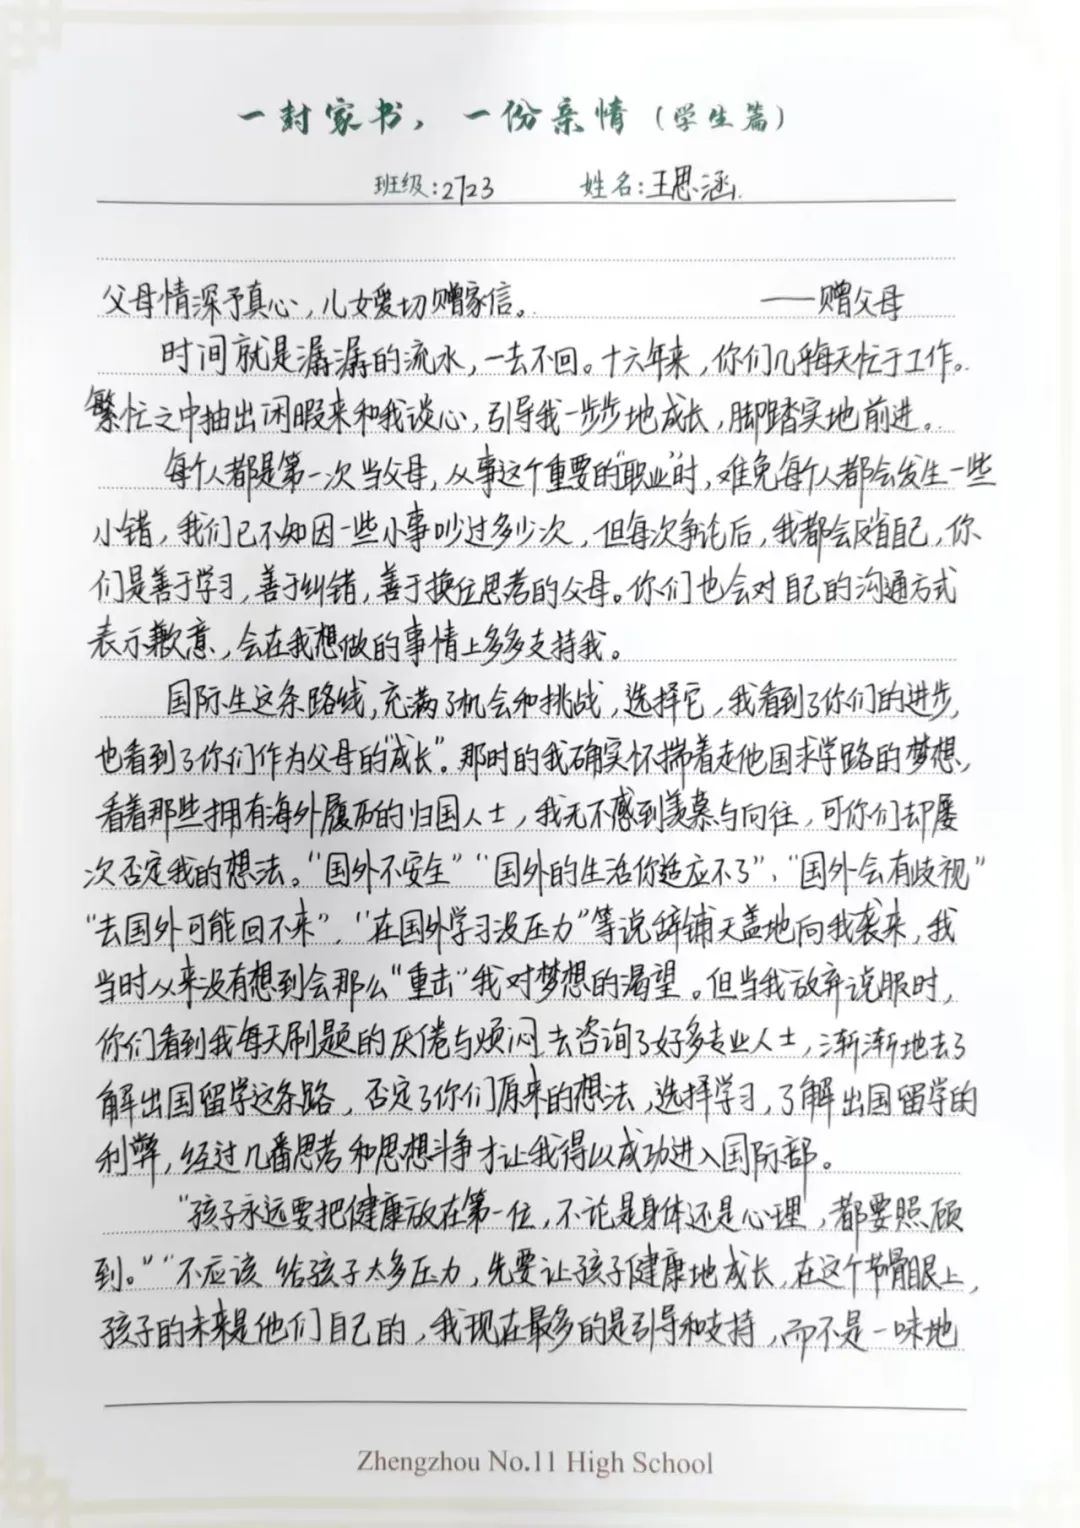 一封家书，一份亲情（学生篇）
班级：2723 姓名：王思涵.
父母情深予真心，儿女爱切赠家信。 ——赠父母
时间就是潺潺的流水，一去不回。十六年来，你们几乎每天忙于工作。
繁忙之中抽出闲暇来和我谈心，引导我一步步地成长，脚踏实地前进。
每个人都是第一次当父母，从事这个重要的“职业”时，难免每个人都会发生一些
小错，我们已不知因一些小事吵过多少次，但每次争论后，我都会反省自己，你
们是善于学习，善于纠错，善于换位思考的父母。你们也会对自己的沟通方式
表示歉意，会在我想做的事情上多多支持我。
国际生这条路线，充满了机会和挑战，选择它，我看到了你们的进步，
也看到了你们作为父母的“成长”。那时的我确实怀揣着走他国求学路的梦想，
看着那些拥有海外履历的归国人士，我无不感到羡慕与向往，可你们却屡
次否定我的想法。“国外不安全”“国外的生活你适应不了”、“国外会有歧视”
“去国外可能回不来”、“在国外学习没压力”等说辞铺天盖地向我袭来，我
当时从来没有想到会那么“重击”我对梦想的渴望。但当我放弃说服时，
你们看到我每天刷题的厌倦与烦闷去咨询了好多专业人士，渐渐地去了
解出国留学这条路，否定了你们原来的想法，选择学习，了解出国留学的
利弊，经过几番思考和思想斗争才让我得以成功进入国际部。
“孩子永远要把健康放在第一位，不论是身体还是心理，都要照顾
到。”“不应该给孩子太多压力，先要让孩子健康地成长，在这个节骨眼上，
孩子的未来是他们自己的，我现在最多的是引导和支持，而不是一味地
Zhengzhou No.11 High School